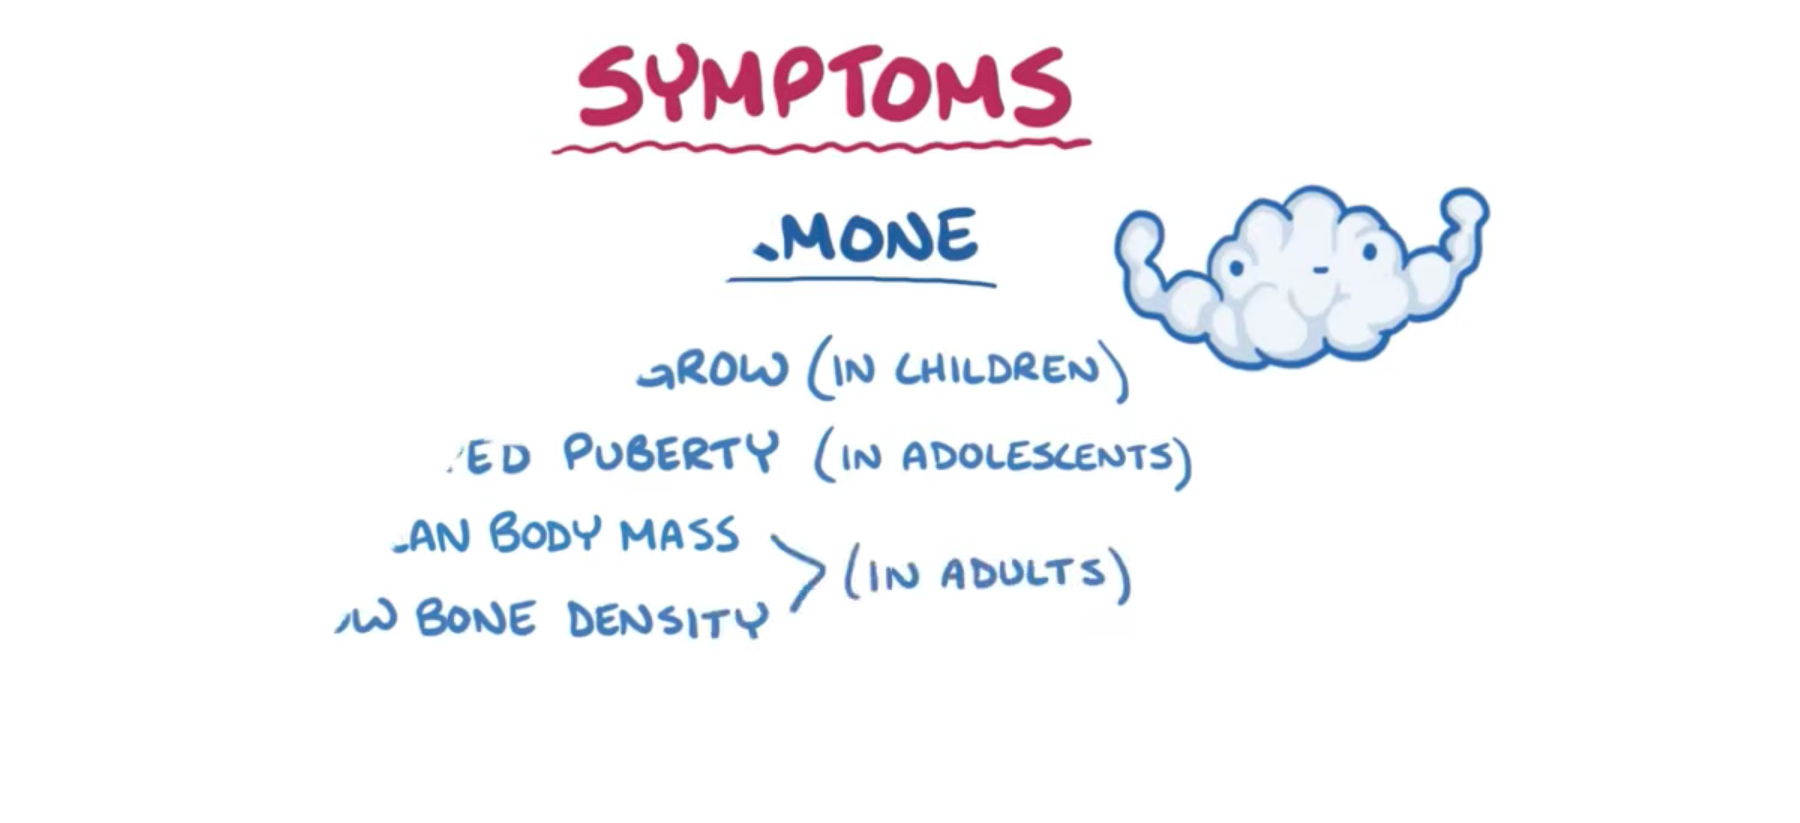 SYMPTOMS
MONE
GROW (IN CHILDREN)
ED PUBERTY (IN ADOLESCENTS)
AN BODY MASS
W BONE DENSITY
(IN ADULTS)